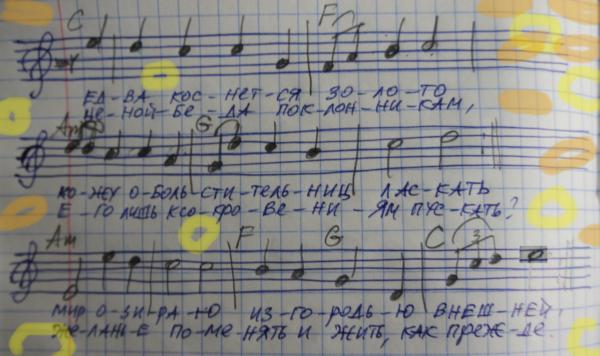 C F
ЕД-ВА КОС-НЕТ-СЯ ЗО-ЛО-ТО
НЕ-НОЙ-БЕ-ДА ПОК-ЛОН-НИ-КАМ,
Am G
КО-ЖУ О-БОЛЬ-СТИ-ТЕЛЬ-НИЦ ЛАС-КАТЬ
Е-ГО ЛИШЬ К СО-КРО-ВЕ-НИ-ЯМ ПУС-КАТЬ?
Am F G C 3
МИР О-ЗИ-РА-Ю ИЗ-ГО-РОДЬ-Ю ВНЕШ-НЕЙ,
ЖЕ-ЛАНЬ-Е ПО-МЕ-НЯТЬ И ЖИТЬ, КАК ПРЕЖ-ДЕ.